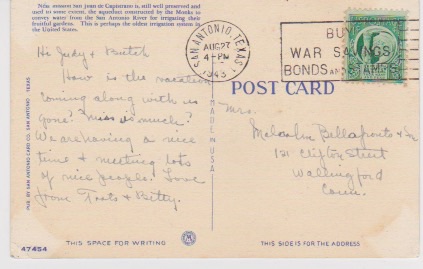 Nilla mission San Juan de Capistrano is, still well preserved and
used to some extent, the aqueduct constructed by the Monks to
convey water from the San Antonio River for irrigating their
fruitful gardens. This is perhaps the oldest irrigation system in
the United States.
Hi Judy & Butch
How is the vacation
coming along with us
gone? Miss us much?
We are having a nice
time & meeting lots
of nice people. Love
from Toots & Betty.
PUB. BY SAN ANTONIO CARD CO. SAN ANTONIO TEXAS
47454
THIS SPACE FOR WRITING
MADE IN USA
SAN ANTONIO, TEXAS
AUG 27
4-PM
1943
BUY
WAR SAVINGS
BONDS AND STAMPS
POST CARD
Mrs.
Malcolm Bellafronte &
121 Clifton Street
Wallingford
Conn.
THIS SIDE IS FOR THE ADDRESS